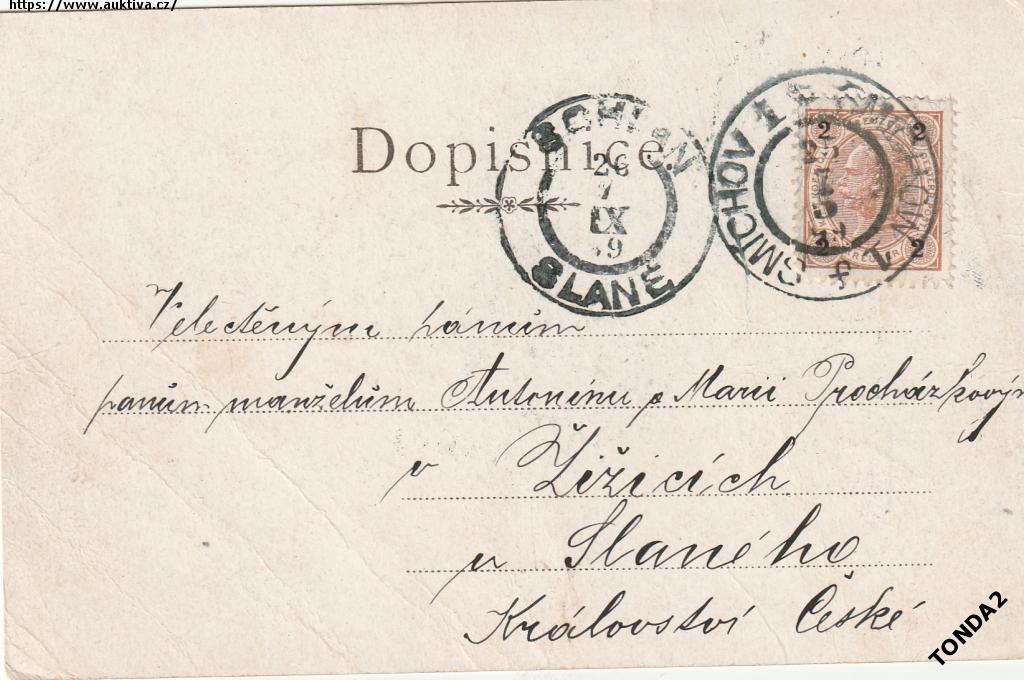 https://www.auktiva.cz/
Dopisnice.
SCHLAN
26
7
IX
SLANÉ
SMICHOV 1
2 2
2 2
Velectěným pánům
panům manželům Antonínu a Marii Procházkovým
v Žižicích
u Slaného
Království České
TONDA2